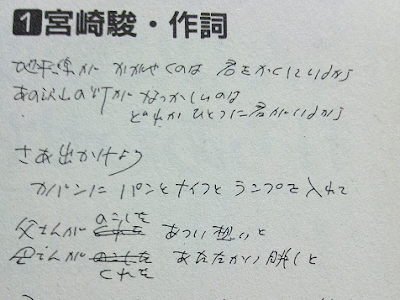 1 宮崎駿・作詞
地平線が かがやくのは 君をかくしているから
あの沢山の灯が なつかしいのは
どれか ひとつに君がいるから
さあ出かけよう
カバンに パンとナイフと ランプを入れて
のこした
父さんが くれた あつい想いと
母さんが のこした あたたかい眼しと
くれた